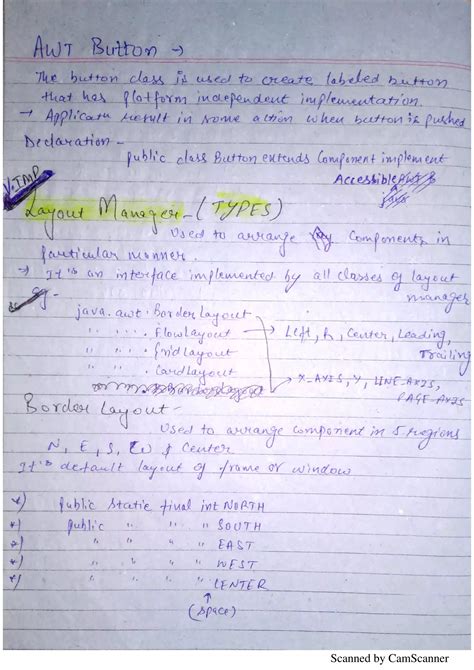 AWT Button →
The button class is used to create labeled button
that has platform independent implementation.
→ Application result in some action when button is pushed
Declaration -
public class Button extends Component implement
Accessible
V.IMP
Layout Manager - (TYPES)
Used to arrange Components in
particular manner.
→ It's an interface implemented by all classes of layout
manager
eg -
java.awt.BorderLayout
" " . FlowLayout → Left, R, Center, Leading,
Trailing
" " . GridLayout
" " . CardLayout
→ X_AXIS, Y, LINE_AXIS,
PAGE_AXIS
Border Layout -
Used to arrange component in 5 regions
N, E, S, W & Center
It's default layout of frame or window
*) public static final int NORTH
*) public " " " SOUTH
*) " " " " EAST
*) " " " " WEST
*) " " " " CENTER
↑
(space)
Scanned by CamScanner